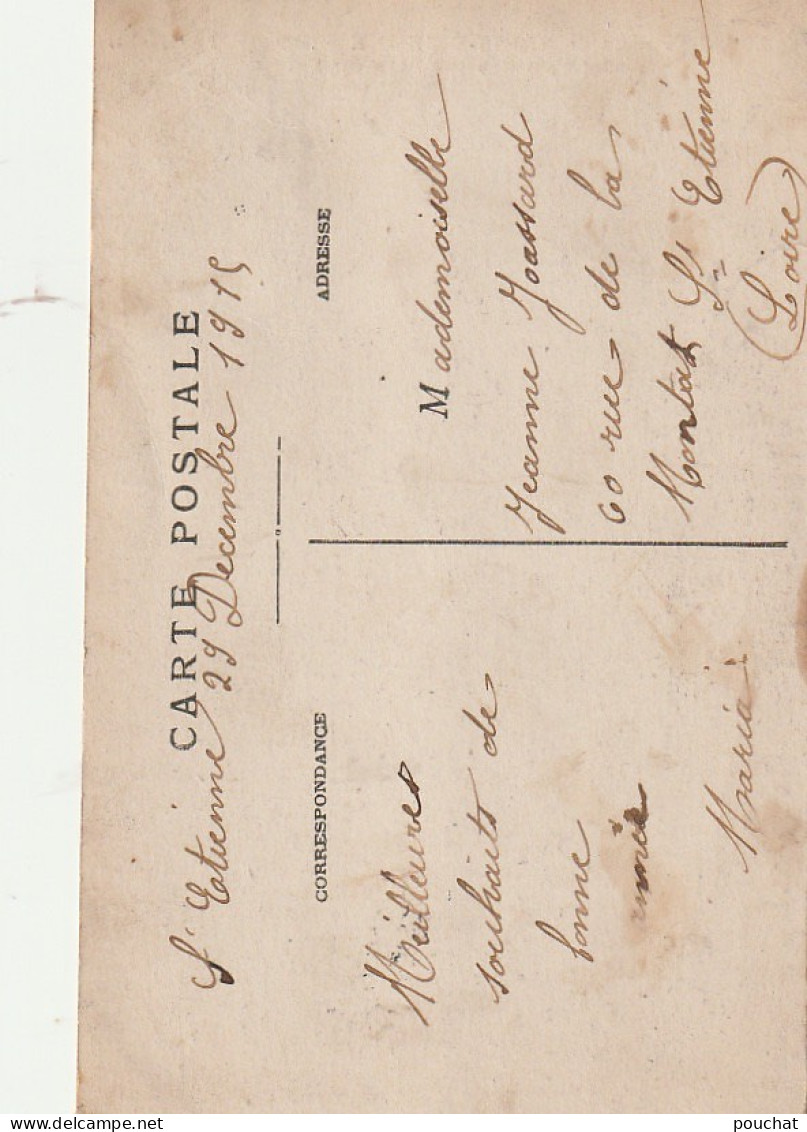 CARTE POSTALE
St Etienne 29 Decembre 1915
CORRESPONDANCE
Meilleures
souhaits de
bonne
année
Maria
ADRESSE
Mademoiselle
Jeanne Joassard
60 rue de la
Montat St Etienne
(Loire)
pouchat